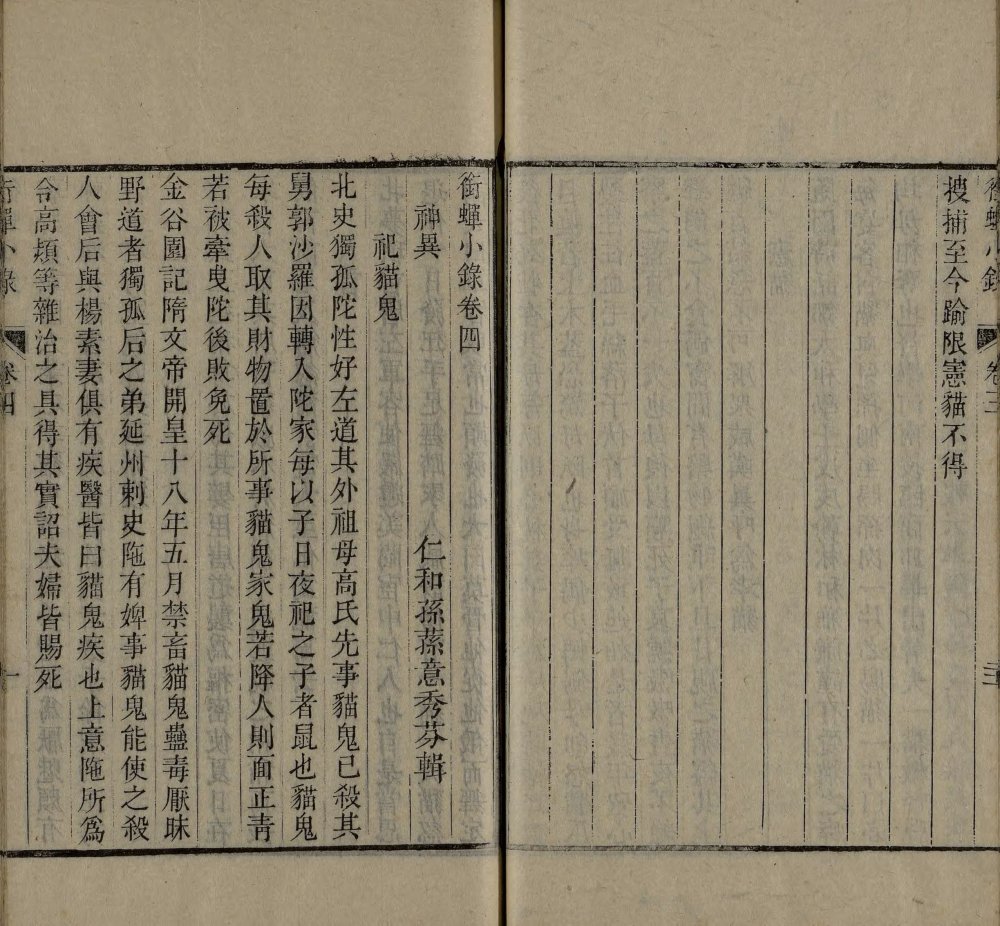 搜捕至今踰限憲貓不得
銜蟬小錄
卷三
銜蟬小錄卷四
神異　仁和孫蓀意秀芬輯
祀貓鬼
北史獨孤陀性好左道其外祖母高氏先事貓鬼已殺其
舅郭沙羅因轉入陀家每以子日夜祀之子者鼠也貓鬼
每殺人取其財物置於所事貓鬼家鬼若降人則面正青
若被牽曳陀後敗免死
金谷園記隋文帝開皇十八年五月禁畜貓鬼蠱毒厭昧
野道者獨孤后之弟延州刺史陁有婢事貓鬼能使之殺
人會后與楊素妻俱有疾醫皆曰貓鬼疾也上意陁所為
令高熲等雜治之具得其實詔夫婦皆賜死
銜蟬小錄
卷四
一